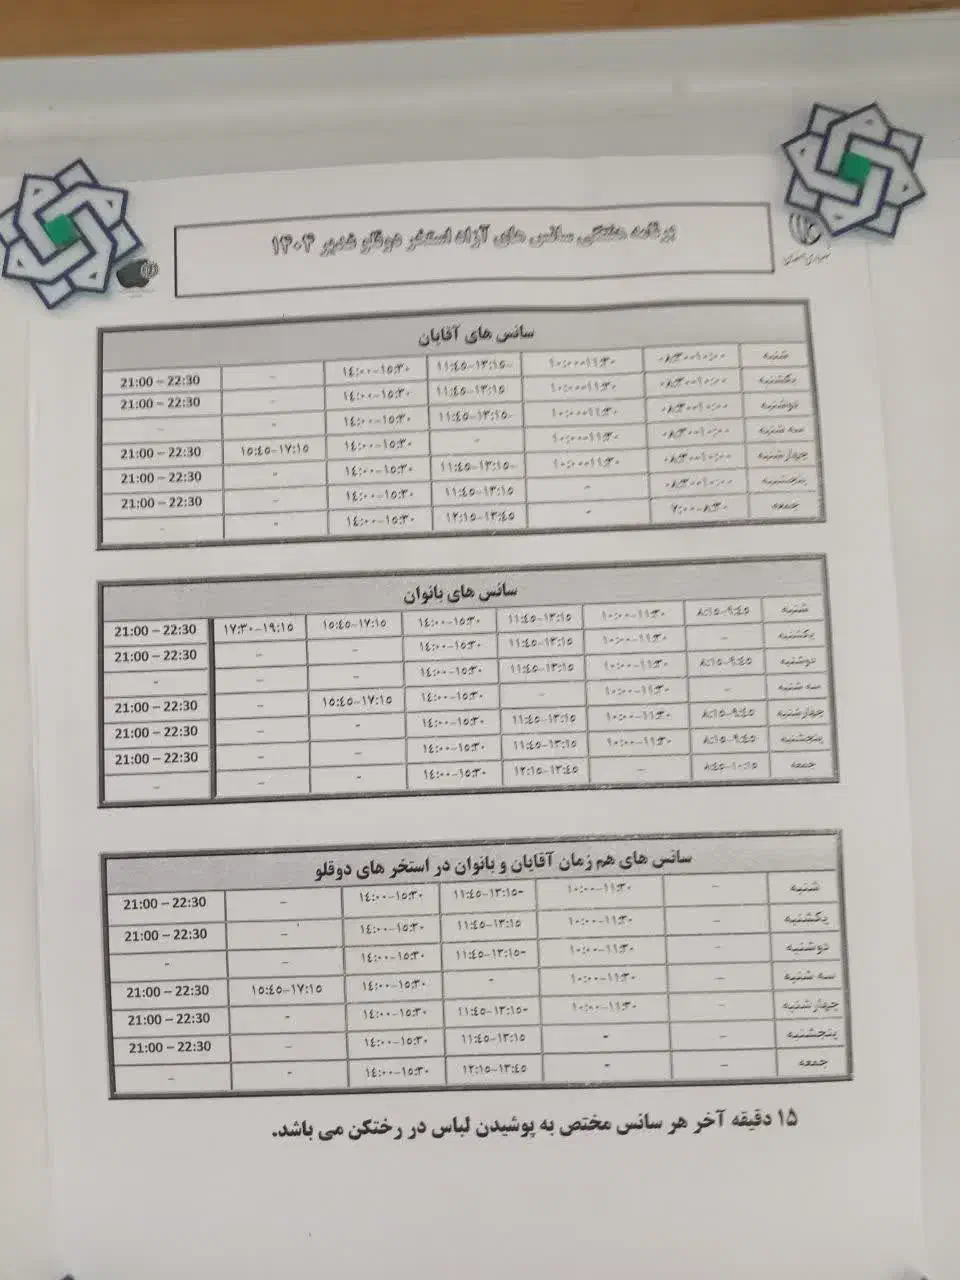 برنامه هفتگی سانس های آزاد استخر دوقلو غدیر ۱۴۰۴
سانس های آقایان
شنبه ۰۸:۳۰-۱۰:۰۰ ۱۰:۰۰-۱۱:۳۰ ۱۱:۴۵-۱۳:۱۵- ۱۴:۰۰-۱۵:۳۰ - 21:00 – 22:30
یکشنبه ۰۸:۳۰-۱۰:۰۰ ۱۰:۰۰-۱۱:۳۰ ۱۱:۴۵-۱۳:۱۵ ۱۴:۰۰-۱۵:۳۰ - 21:00 – 22:30
دوشنبه ۰۸:۳۰-۱۰:۰۰ ۱۰:۰۰-۱۱:۳۰ ۱۱:۴۵-۱۳:۱۵- ۱۴:۰۰-۱۵:۳۰ - -
سه شنبه ۰۸:۳۰-۱۰:۰۰ ۱۰:۰۰-۱۱:۳۰ - ۱۴:۰۰-۱۵:۳۰ ۱۵:۴۵-۱۷:۱۵ 21:00 – 22:30
چهارشنبه ۰۸:۳۰-۱۰:۰۰ ۱۰:۰۰-۱۱:۳۰ ۱۱:۴۵-۱۳:۱۵- ۱۴:۰۰-۱۵:۳۰ - 21:00 – 22:30
پنجشنبه ۰۸:۳۰-۱۰:۰۰ - ۱۱:۴۵-۱۳:۱۵ ۱۴:۰۰-۱۵:۳۰ - 21:00 – 22:30
جمعه ۷:۰۰-۸:۳۰ - ۱۲:۱۵-۱۳:۴۵ ۱۴:۰۰-۱۵:۳۰ - -
سانس های بانوان
شنبه ۸:۱۵-۹:۴۵ ۱۰:۰۰-۱۱:۳۰ ۱۱:۴۵-۱۳:۱۵ ۱۴:۰۰-۱۵:۳۰ ۱۵:۴۵-۱۷:۱۵ ۱۷:۳۰-۱۹:۱۵ 21:00 – 22:30
یکشنبه - ۱۰:۰۰-۱۱:۳۰ ۱۱:۴۵-۱۳:۱۵ ۱۴:۰۰-۱۵:۳۰ - - 21:00 – 22:30
دوشنبه ۸:۱۵-۹:۴۵ ۱۰:۰۰-۱۱:۳۰ ۱۱:۴۵-۱۳:۱۵ ۱۴:۰۰-۱۵:۳۰ - - -
سه شنبه - ۱۰:۰۰-۱۱:۳۰ - ۱۴:۰۰-۱۵:۳۰ ۱۵:۴۵-۱۷:۱۵ - 21:00 – 22:30
چهارشنبه ۸:۱۵-۹:۴۵ ۱۰:۰۰-۱۱:۳۰ ۱۱:۴۵-۱۳:۱۵ ۱۴:۰۰-۱۵:۳۰ - - 21:00 – 22:30
پنجشنبه ۸:۱۵-۹:۴۵ ۱۰:۰۰-۱۱:۳۰ ۱۱:۴۵-۱۳:۱۵ ۱۴:۰۰-۱۵:۳۰ - - 21:00 – 22:30
جمعه ۸:۴۵-۱۰:۱۵ - ۱۲:۱۵-۱۳:۴۵ ۱۴:۰۰-۱۵:۳۰ - - -
سانس های هم زمان آقایان و بانوان در استخر های دوقلو
شنبه - ۱۰:۰۰-۱۱:۳۰ ۱۱:۴۵-۱۳:۱۵- ۱۴:۰۰-۱۵:۳۰ - 21:00 – 22:30
یکشنبه - ۱۰:۰۰-۱۱:۳۰ ۱۱:۴۵-۱۳:۱۵ ۱۴:۰۰-۱۵:۳۰ - 21:00 – 22:30
دوشنبه - ۱۰:۰۰-۱۱:۳۰ ۱۱:۴۵-۱۳:۱۵- ۱۴:۰۰-۱۵:۳۰ - -
سه شنبه - ۱۰:۰۰-۱۱:۳۰ - ۱۴:۰۰-۱۵:۳۰ ۱۵:۴۵-۱۷:۱۵ 21:00 – 22:30
چهارشنبه - ۱۰:۰۰-۱۱:۳۰ ۱۱:۴۵-۱۳:۱۵- ۱۴:۰۰-۱۵:۳۰ - 21:00 – 22:30
پنجشنبه - - ۱۱:۴۵-۱۳:۱۵ ۱۴:۰۰-۱۵:۳۰ - 21:00 – 22:30
جمعه - - ۱۲:۱۵-۱۳:۴۵ ۱۴:۰۰-۱۵:۳۰ - -
۱۵ دقیقه آخر هر سانس مختص به پوشیدن لباس در رختکن می باشد.